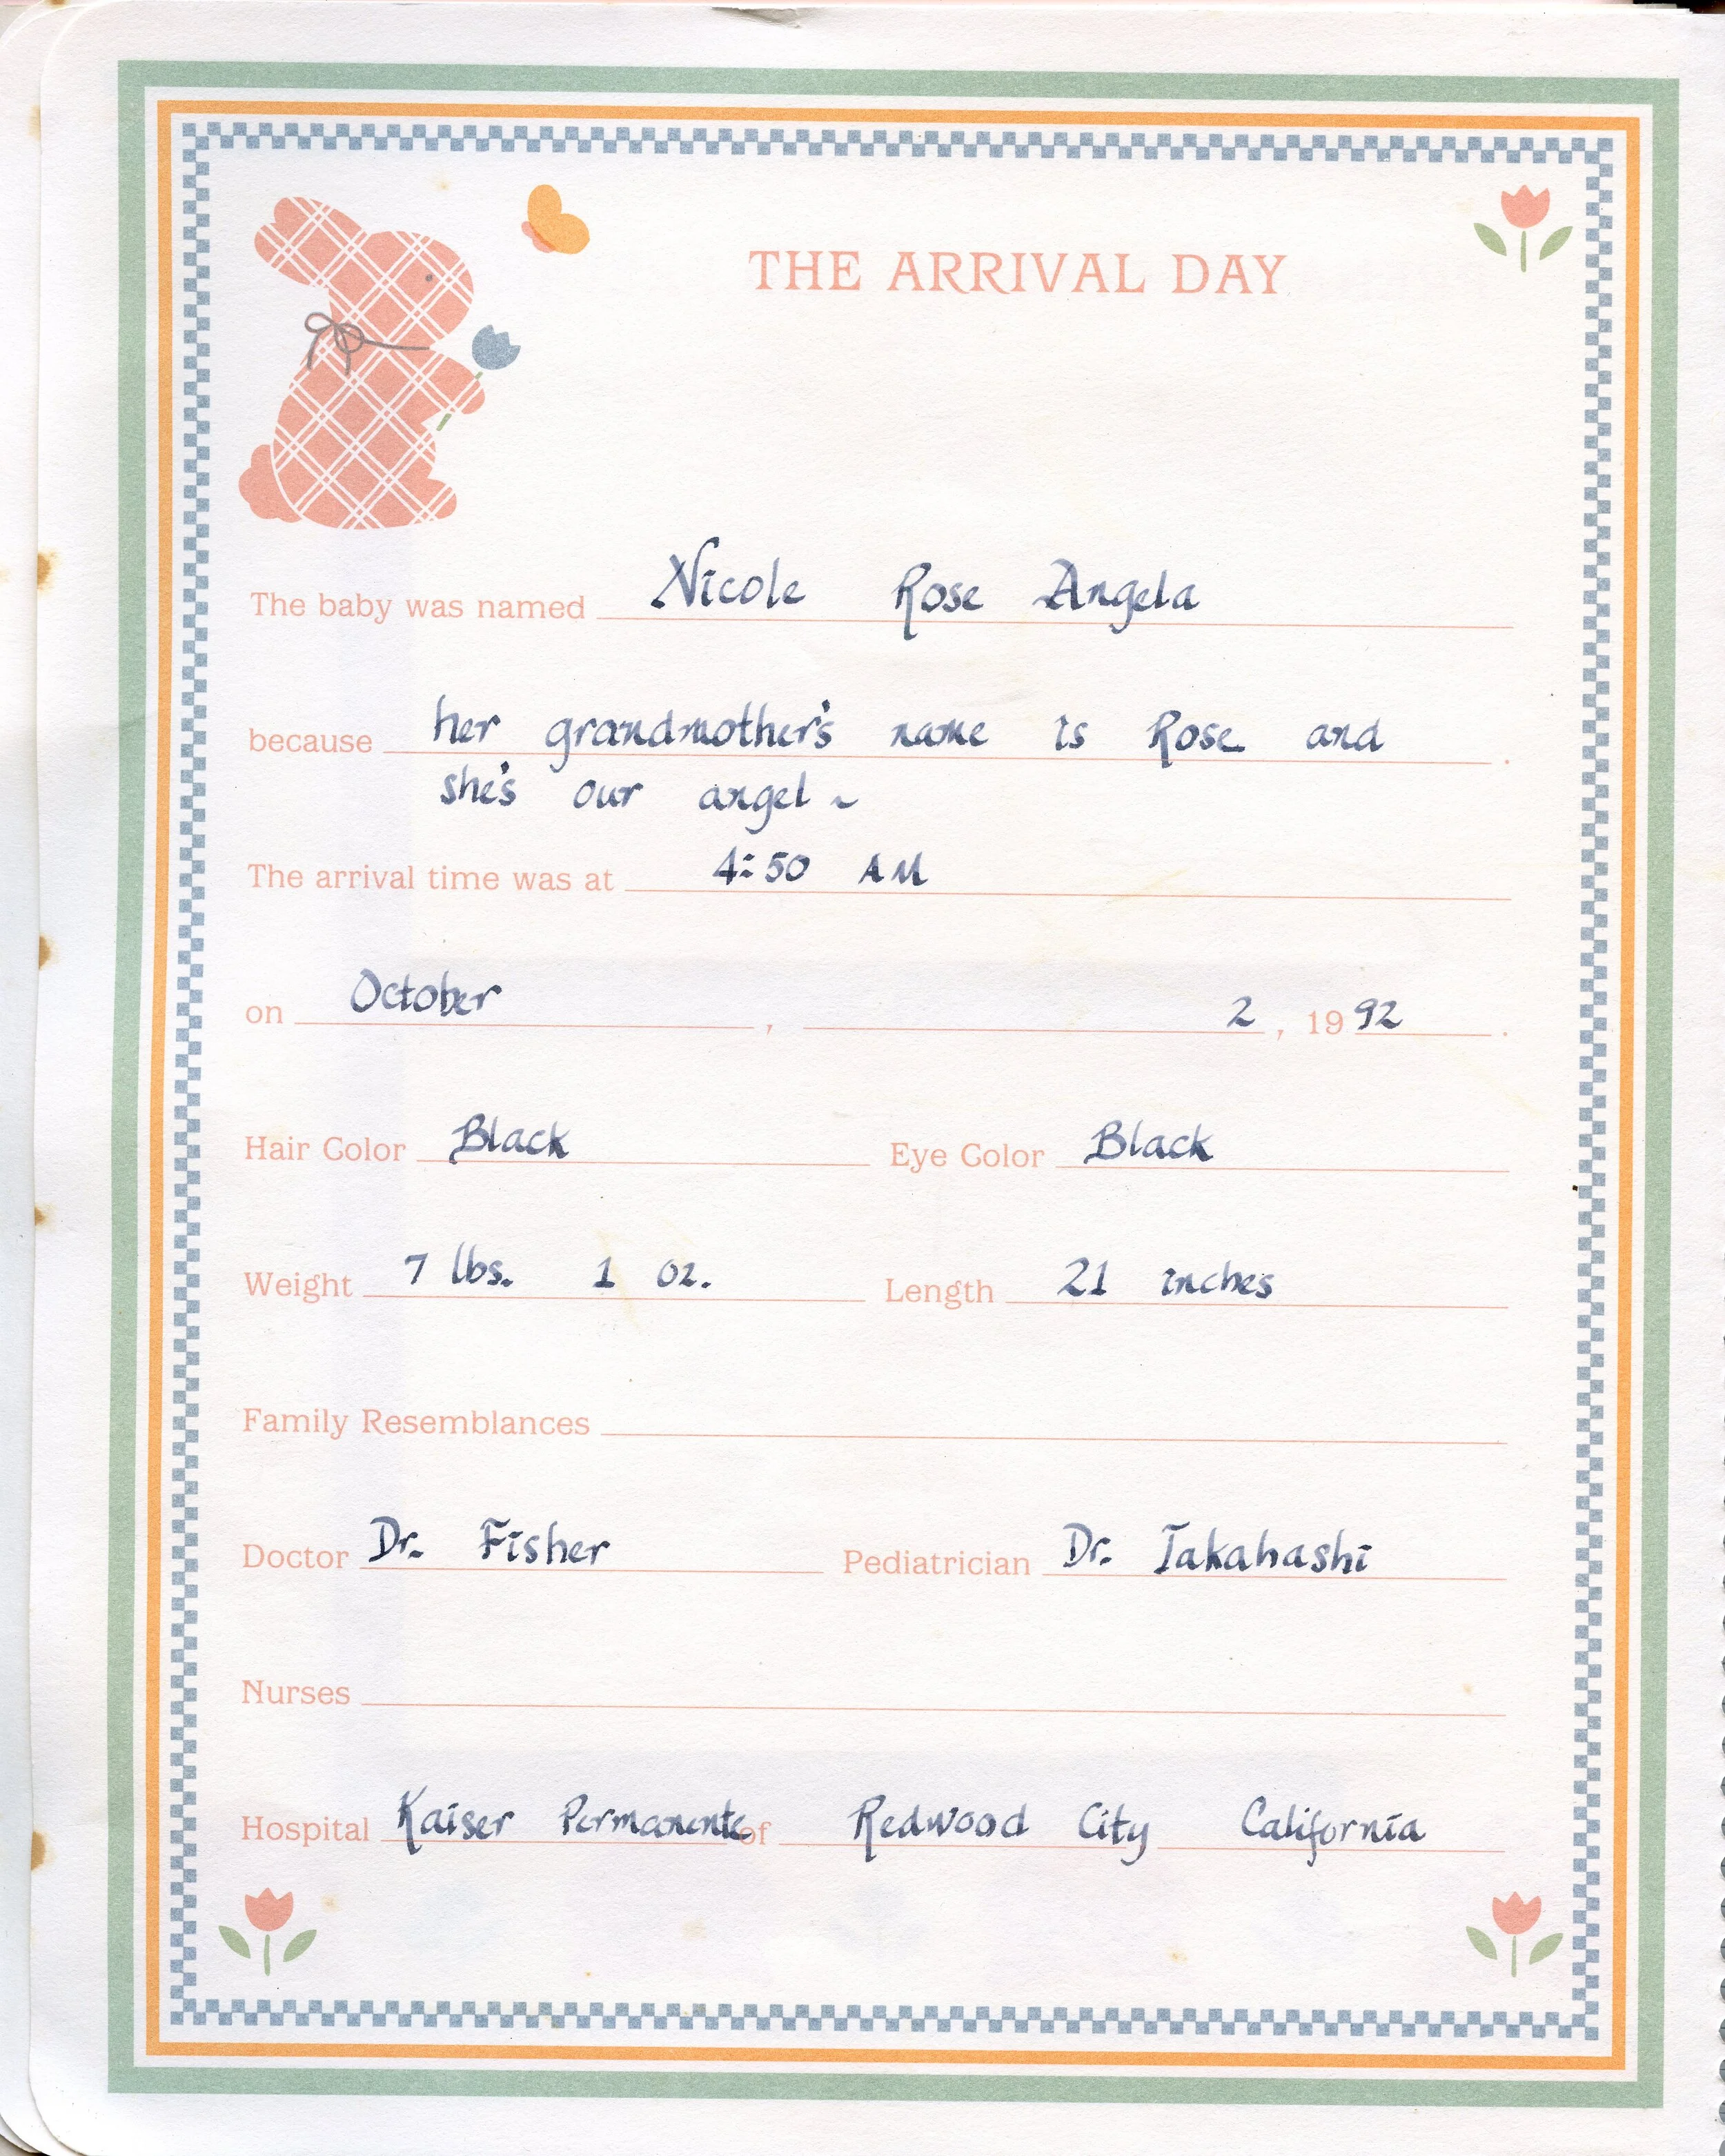 THE ARRIVAL DAY
The baby was named Nicole Rose Angela
because her grandmother's name is Rose and .
she's our angel ~
The arrival time was at 4:50 AM
on October , 2 , 19 92 .
Hair Color Black Eye Color Black
Weight 7 lbs. 1 oz. Length 21 inches
Family Resemblances
Doctor Dr. Fisher Pediatrician Dr. Takahashi
Nurses
Hospital Kaiser Permanente of Redwood City California